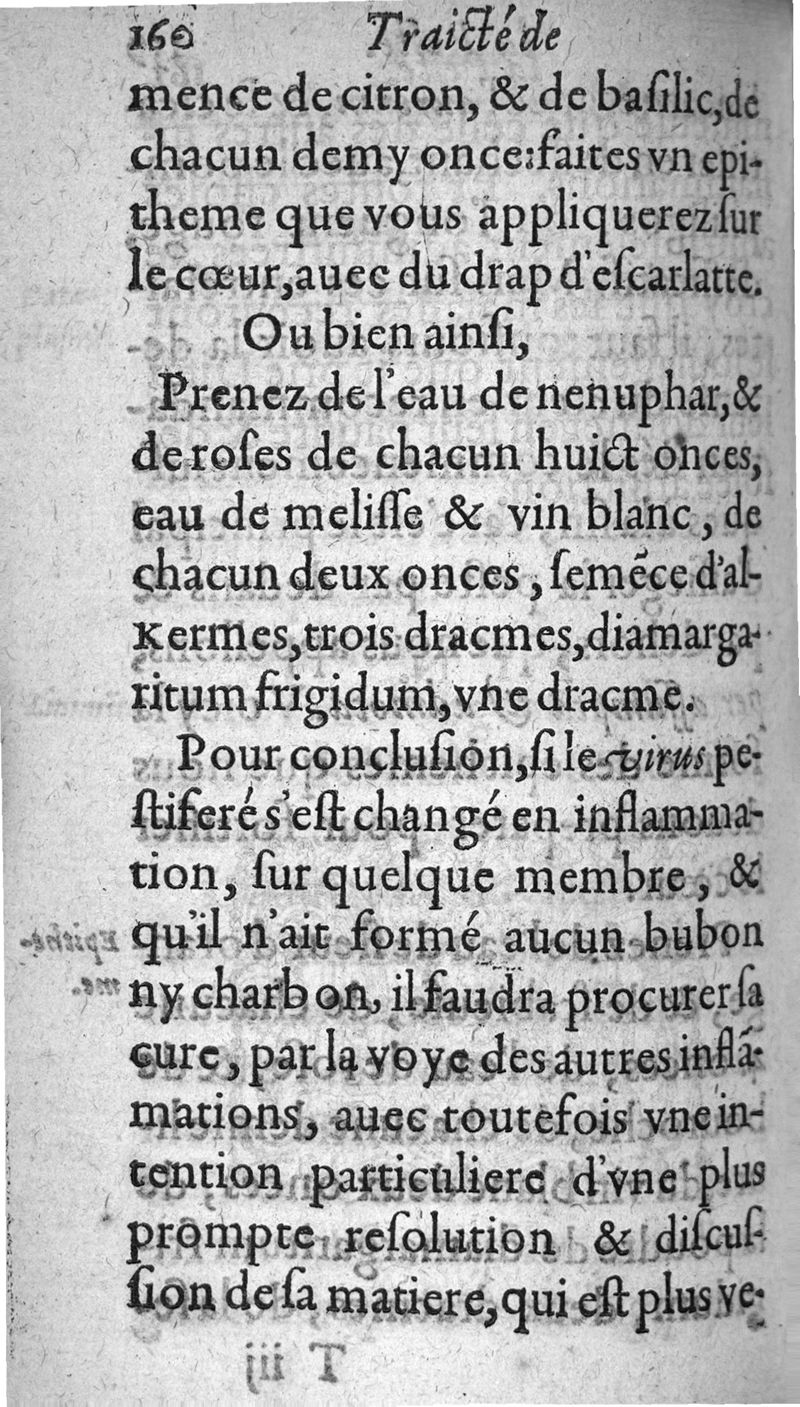 160 Traicté de
mence de citron, & de baſilic, de
chacun demy once: faites vn epi-
theme que vous appliquerez ſur
le cœur, auec du drap d'eſcarlatte.
Ou bien ainſi,
Prenez de l'eau de nenuphar, &
de roſes de chacun huict onces,
eau de meliſſe & vin blanc, de
chacun deux onces, ſeméce d'al-
Kermes, trois dracmes, diamarga-
ritum frigidum, vne dracme.
Pour concluſion, ſi le virus pe-
ſtiferé s'eſt changé en inflamma-
tion, ſur quelque membre, &
qu'il n'ait formé aucun bubon
ny charbon, il faudra procurer ſa
cure, par la voye des autres inflá-
mations, auec toutefois vne in-
tention particuliere d'vne plus
prompte reſolution & diſcuſ-
ſion de ſa matiere, qui eſt plus ve-